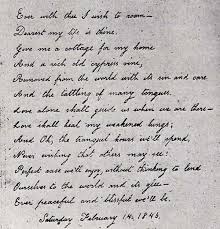 Ever with thee I wish to roam—
Dearest my life is thine.
Give me a cottage for my home
And a rich old cypress vine,
Removed from the world with its sin and care
And the tattling of many tongues.
Love alone shall guide us when we are there—
Love shall heal my weakened lungs;
And Oh, the tranquil hours we'll spend,
Never wishing that others may see!
Perfect ease we'll enjoy, without thinking to lend
Ourselves to the world and its glee—
Ever peaceful and blissful we'll be.
Saturday February 14. 1846.